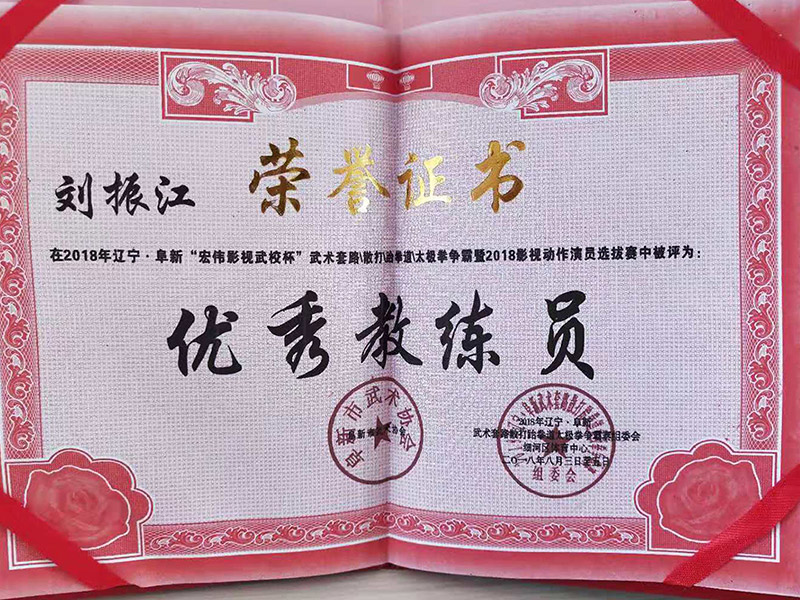 荣誉证书
刘振江
在2018年辽宁·阜新“宏伟影视武校杯”武术套路\散打\跆拳道\太极拳争霸暨2018影视动作演员选拔赛中被评为:
优秀教练员
阜新市武术协会
2018年辽宁·阜新
武术套路散打跆拳道太极拳争霸赛组委会
细河区体育中心
二〇一八年八月三日至五日
组委会